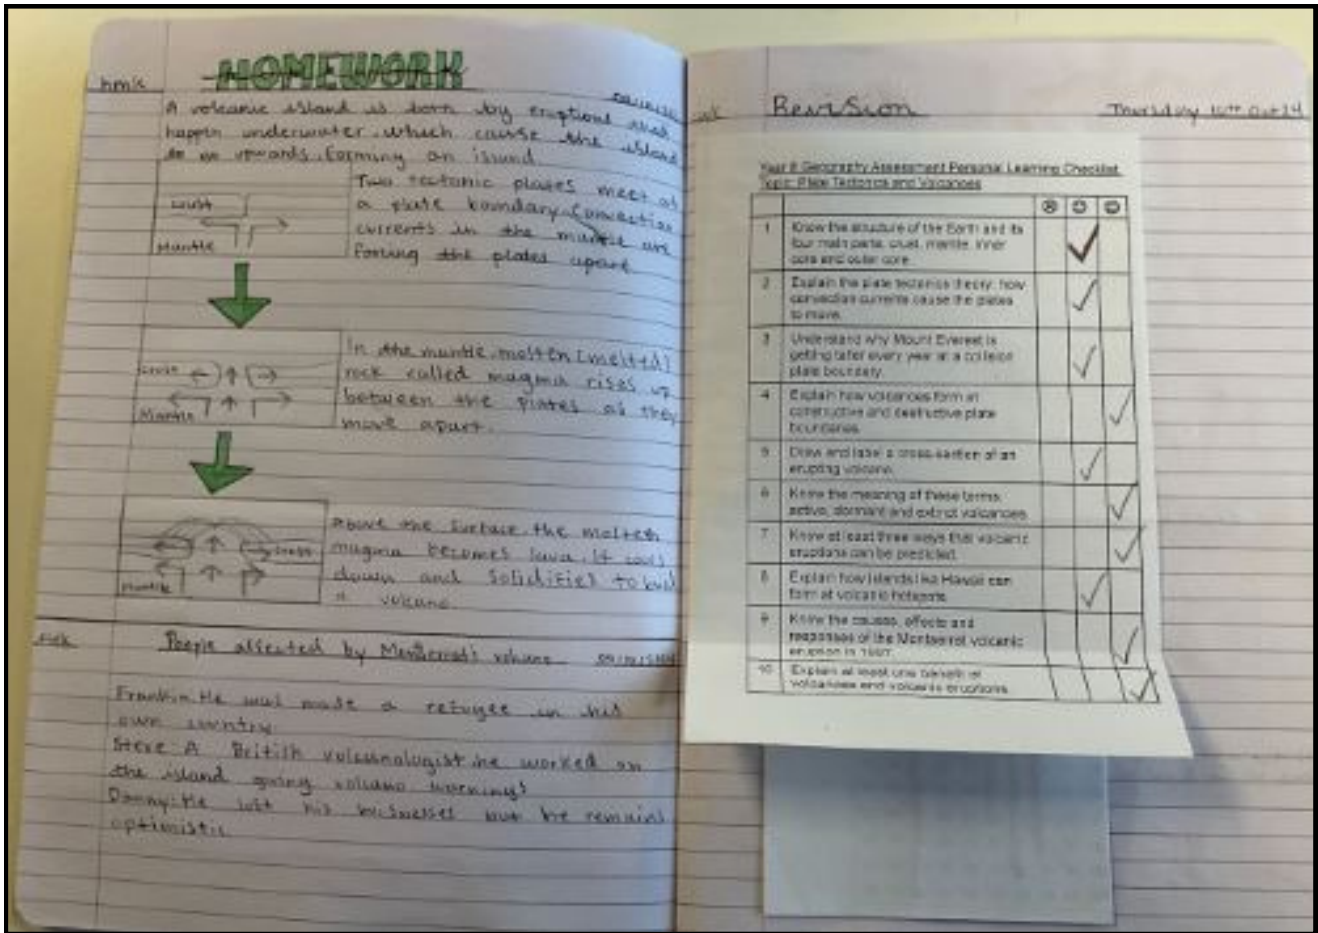 hmk
HOMEWORK
A volcanic island is born by eruptions that
happen underwater. which cause the island
to go upwards, forming an island
crust
Mantle
Two tectonic plates meet at
a plate boundary. Convection
currents in the mantle are
forcing the plates apart.
crust
Mantle
In the mantle, molten (melted)
rock called magma rises up
between the plates as they
move apart.
crust
Mantle
Above the surface, the molten
magma becomes lava. it cools
down and solidifies to build
a volcano.
People affected by Montserrat's volcano
Franklin: He was made a refugee in his
own country
Steve: A British volcanologist. he worked on
the island giving volcano warnings
Danny: He lost his businesses but he remains
optimistic
Revision Thursday 10th Oct 24
Year 8 Geography Assessment Personal Learning Checklist
Topic: Plate Tectonics and Volcanoes
1 Know the structure of the Earth and its
four main parts: crust, mantle, inner
core and outer core.
2 Explain the plate tectonics theory: how
convection currents cause the plates
to move.
3 Understand why Mount Everest is
getting taller every year at a collision
plate boundary.
4 Explain how volcanoes form at
constructive and destructive plate
boundaries.
5 Draw and label a cross-section of an
erupting volcano.
6 Know the meaning of these terms:
active, dormant and extinct volcanoes.
7 Know at least three ways that volcanic
eruptions can be predicted.
8 Explain how islands like Hawaii can
form at volcanic hotspots.
9 Know the causes, effects and
responses of the Montserrat volcanic
eruption in 1997.
10 Explain at least one benefit of
volcanoes and volcanic eruptions.